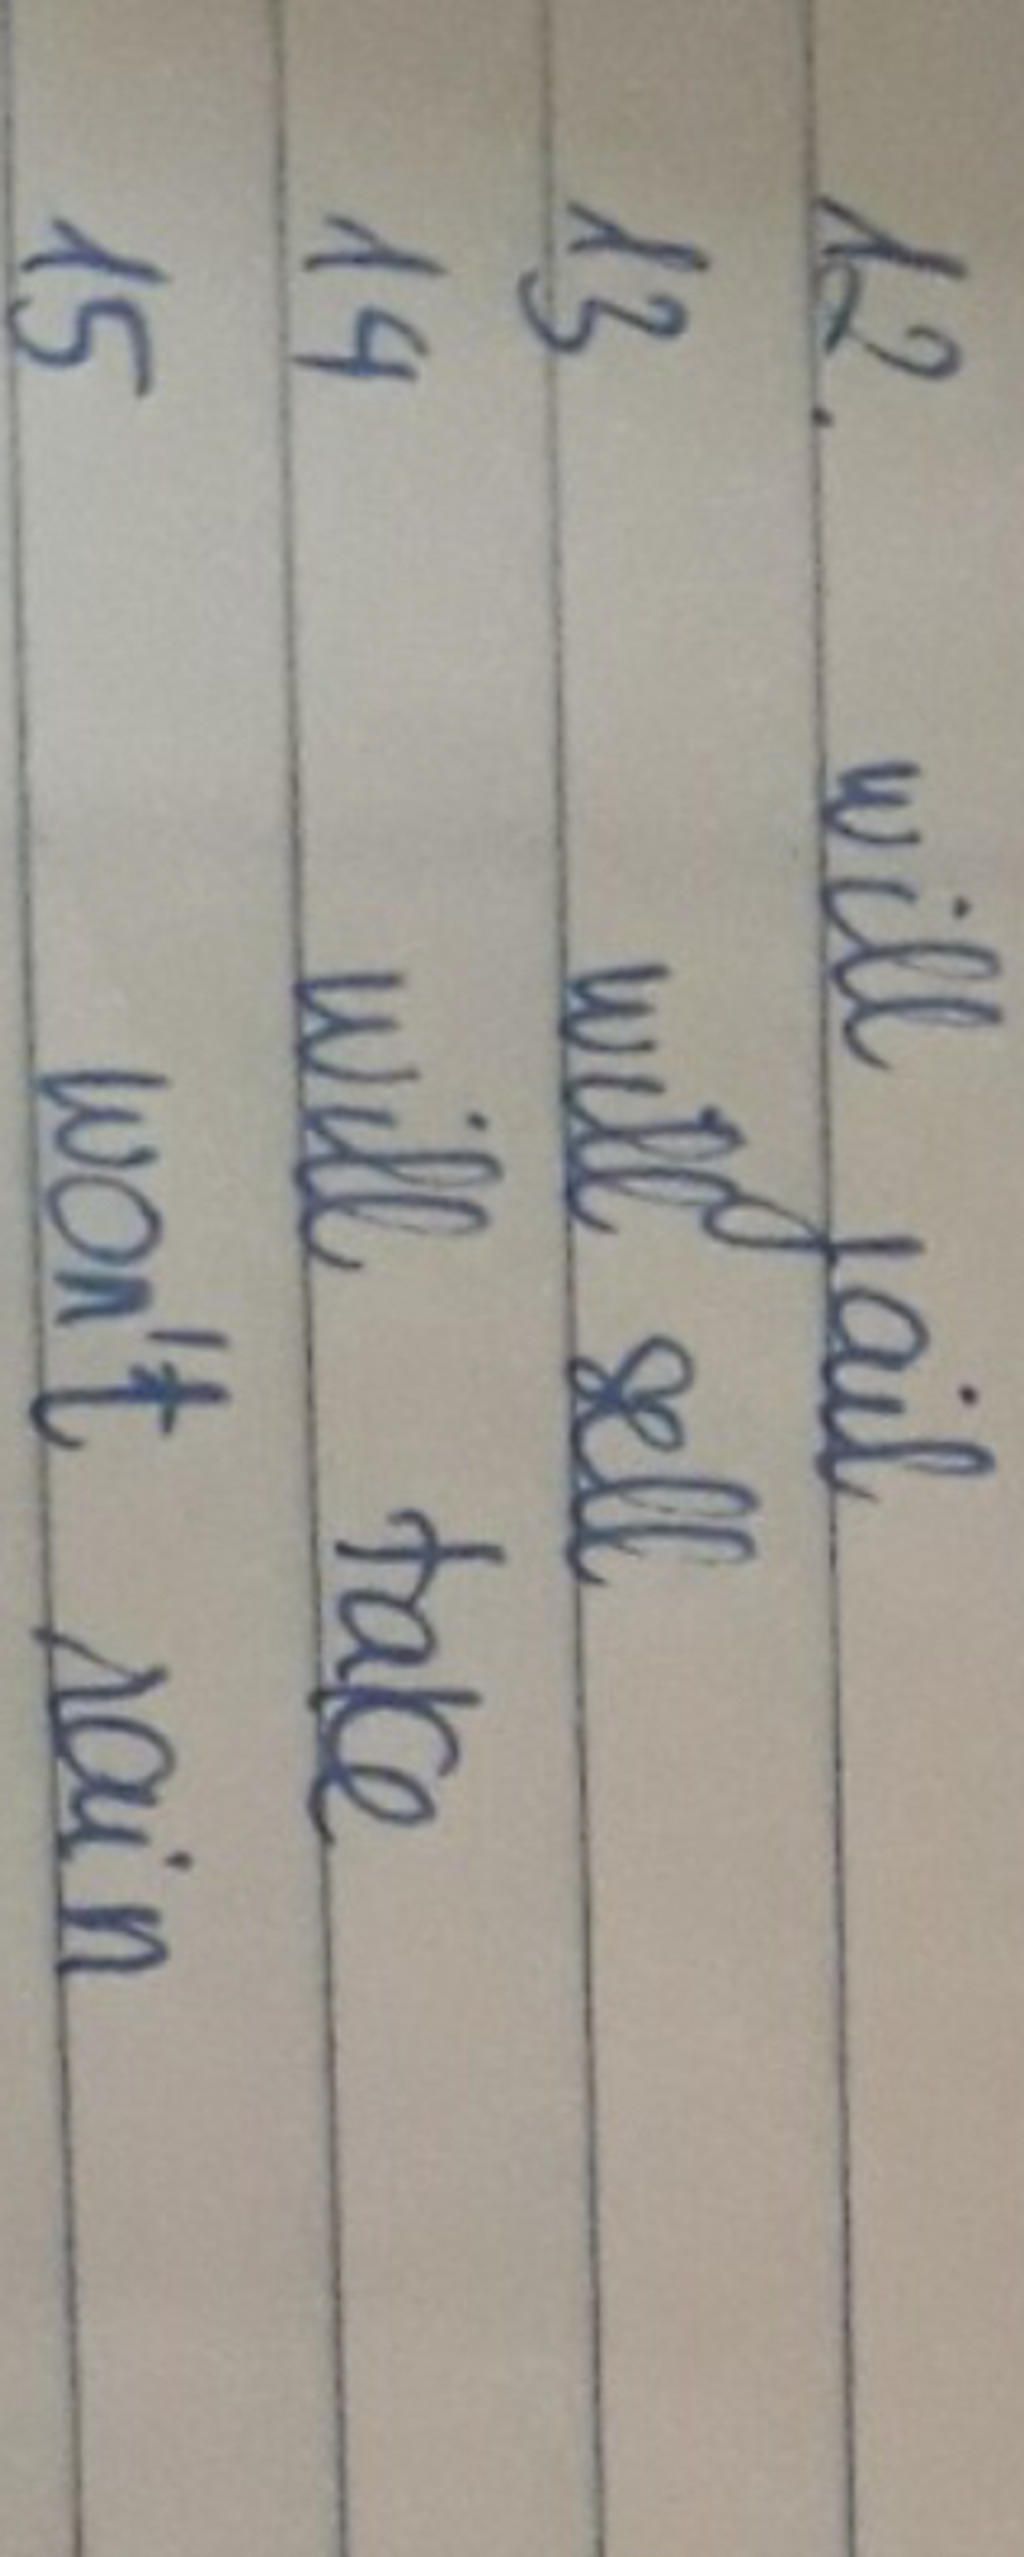 12. will fail
13 will sell
14 will take
15 won't rain